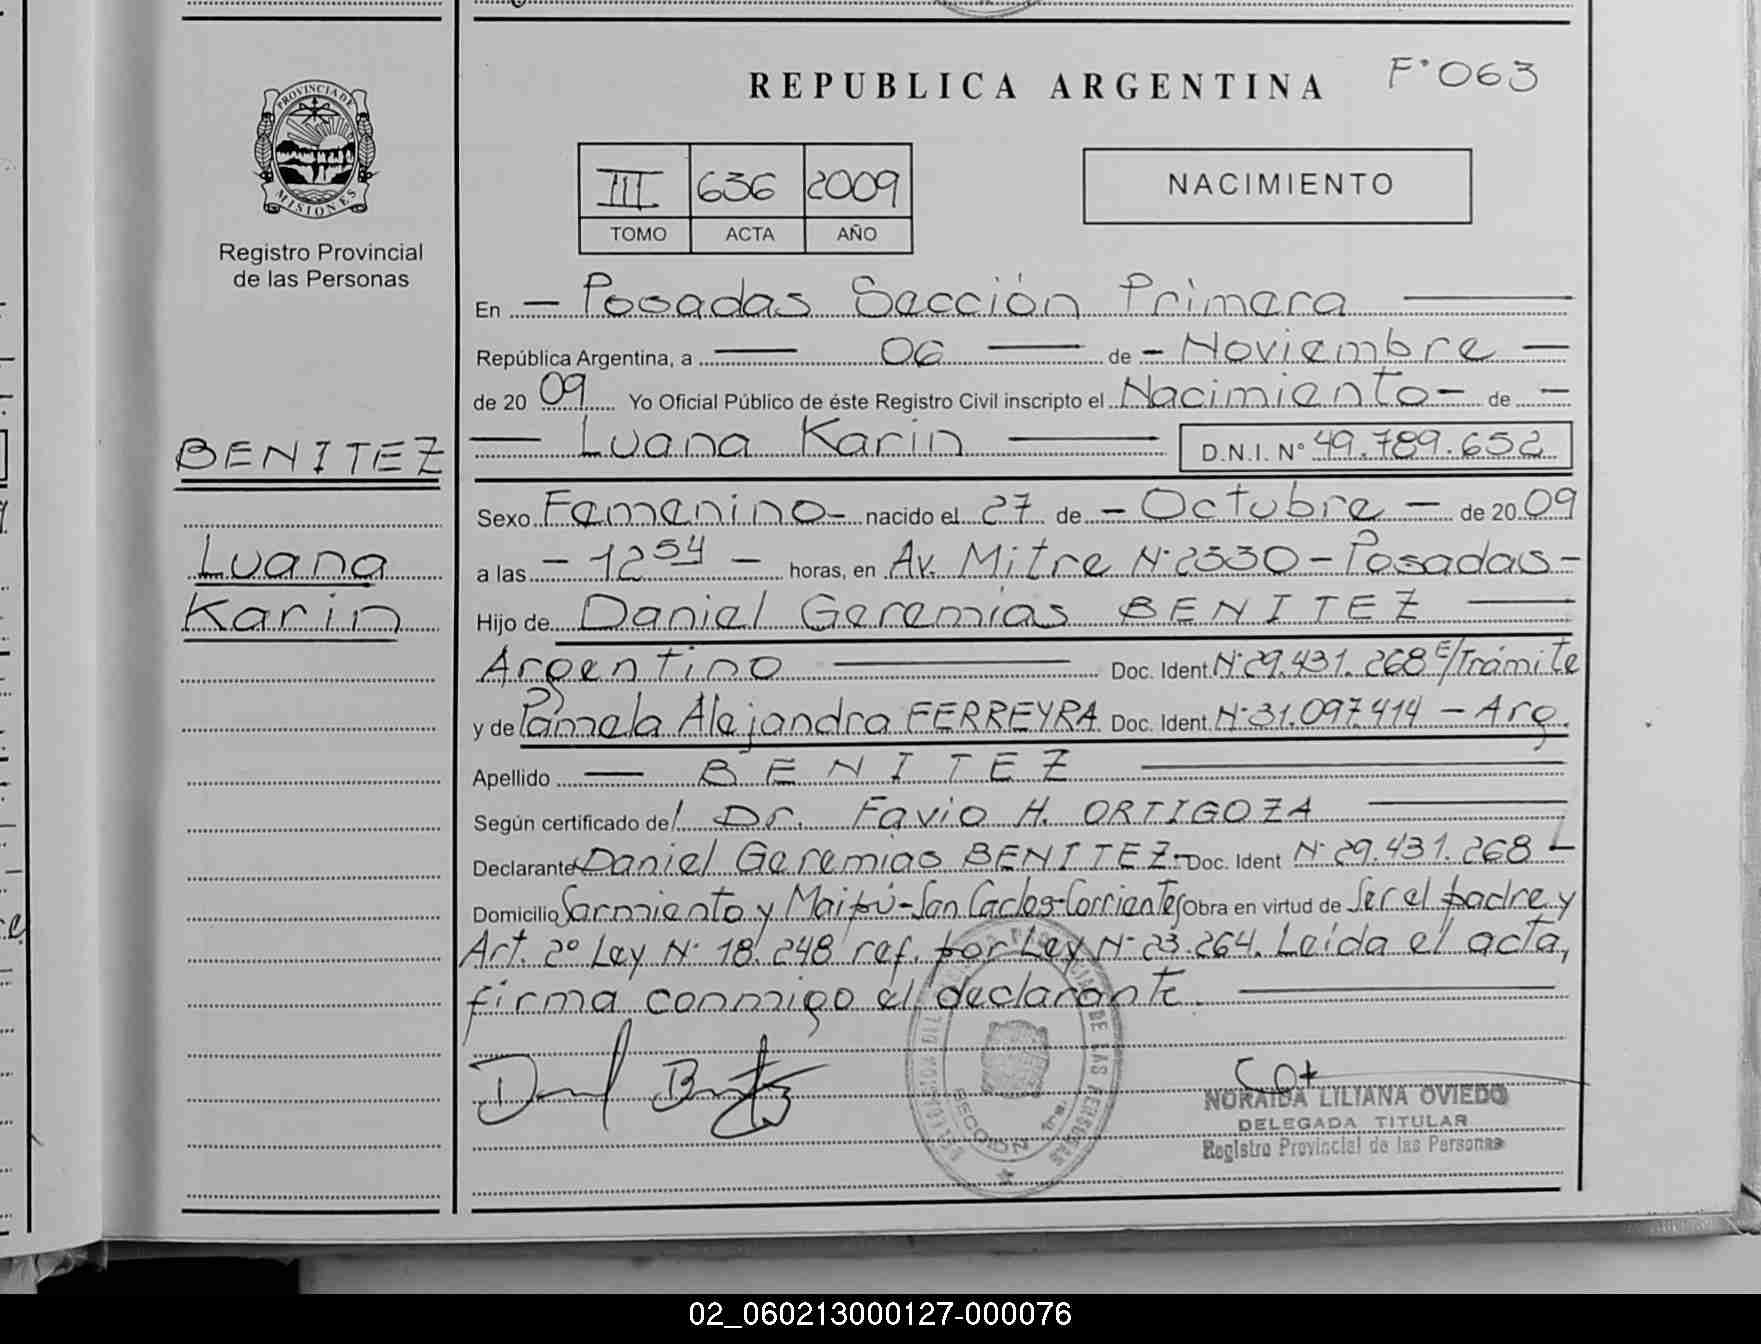 REPUBLICA ARGENTINA F°063
PROVINCIA DE MISIONES
Registro Provincial
de las Personas
III 636 2009
TOMO ACTA AÑO
NACIMIENTO
En - Posadas Sección Primera
República Argentina, a 06 de - Noviembre -
de 2009 Yo Oficial Público de éste Registro Civil inscripto el Nacimiento - de -
BENITEZ
Luana Karin D.N.I. N° 49.789.652
Sexo Femenino - nacido el 27 de - Octubre - de 2009
Luana
Karin
a las - 12 54 - horas, en Av. Mitre N° 2330 - Posadas -
Hijo de Daniel Geremias BENITEZ
Argentino Doc. Ident. N° 29.431.268 E/Trámite
y de Pamela Alejandra FERREYRA Doc. Ident. N° 31.097.414 - Arg.
Apellido BENITEZ
Según certificado del Dr. Favio H. ORTIGOZA
Declarante Daniel Geremias BENITEZ - Doc. Ident N° 29.431.268
Domicilio Sarmiento y Maipú - San Carlos - Corrientes Obra en virtud de Ser el padre y
Art. 2° Ley N° 18.248 ref. por Ley N° 23.264. Leída el acta,
firma conmigo el declarante.
NORAIDA LILIANA OVIEDO
DELEGADA TITULAR
Registro Provincial de las Personas
SECCION 1ra.
02_060213000127-000076